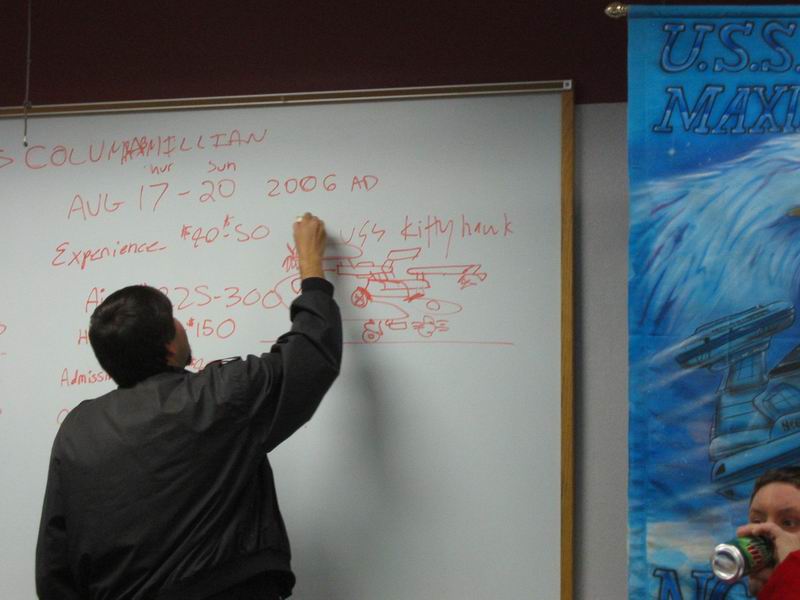 S COLUM MILLIAN
hur sun
AUG 17-20 2006 AD
Experience $40-$50
USS Kitty hawk
225-300
$150
Admiss
U.S.S.
MAXI